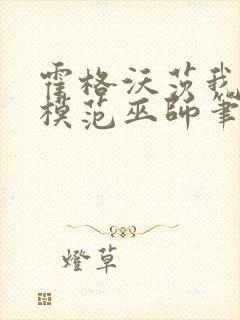 霍格沃茨我
模范巫师筆
燈草